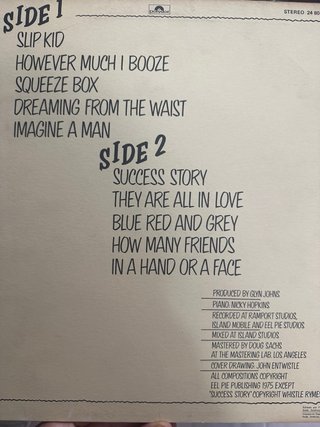 SIDE 1
STEREO 24 80
SLIP KID
HOWEVER MUCH I BOOZE
SQUEEZE BOX
DREAMING FROM THE WAIST
IMAGINE A MAN
SIDE 2
SUCCESS STORY
THEY ARE ALL IN LOVE
BLUE RED AND GREY
HOW MANY FRIENDS
IN A HAND OR A FACE
PRODUCED BY GLYN JOHNS
PIANO: NICKY HOPKINS
RECORDED AT RAMPORT STUDIOS,
ISLAND MOBILE AND EEL PIE STUDIOS
MIXED AT ISLAND STUDIOS
MASTERED BY DOUG SACHS
AT THE MASTERING LAB. LOS ANGELES
COVER DRAWING: JOHN ENTWISTLE
ALL COMPOSITIONS COPYRIGHT
EEL PIE PUBLISHING 1975 EXCEPT
"SUCCESS STORY" COPYRIGHT WHISTLE RYMES